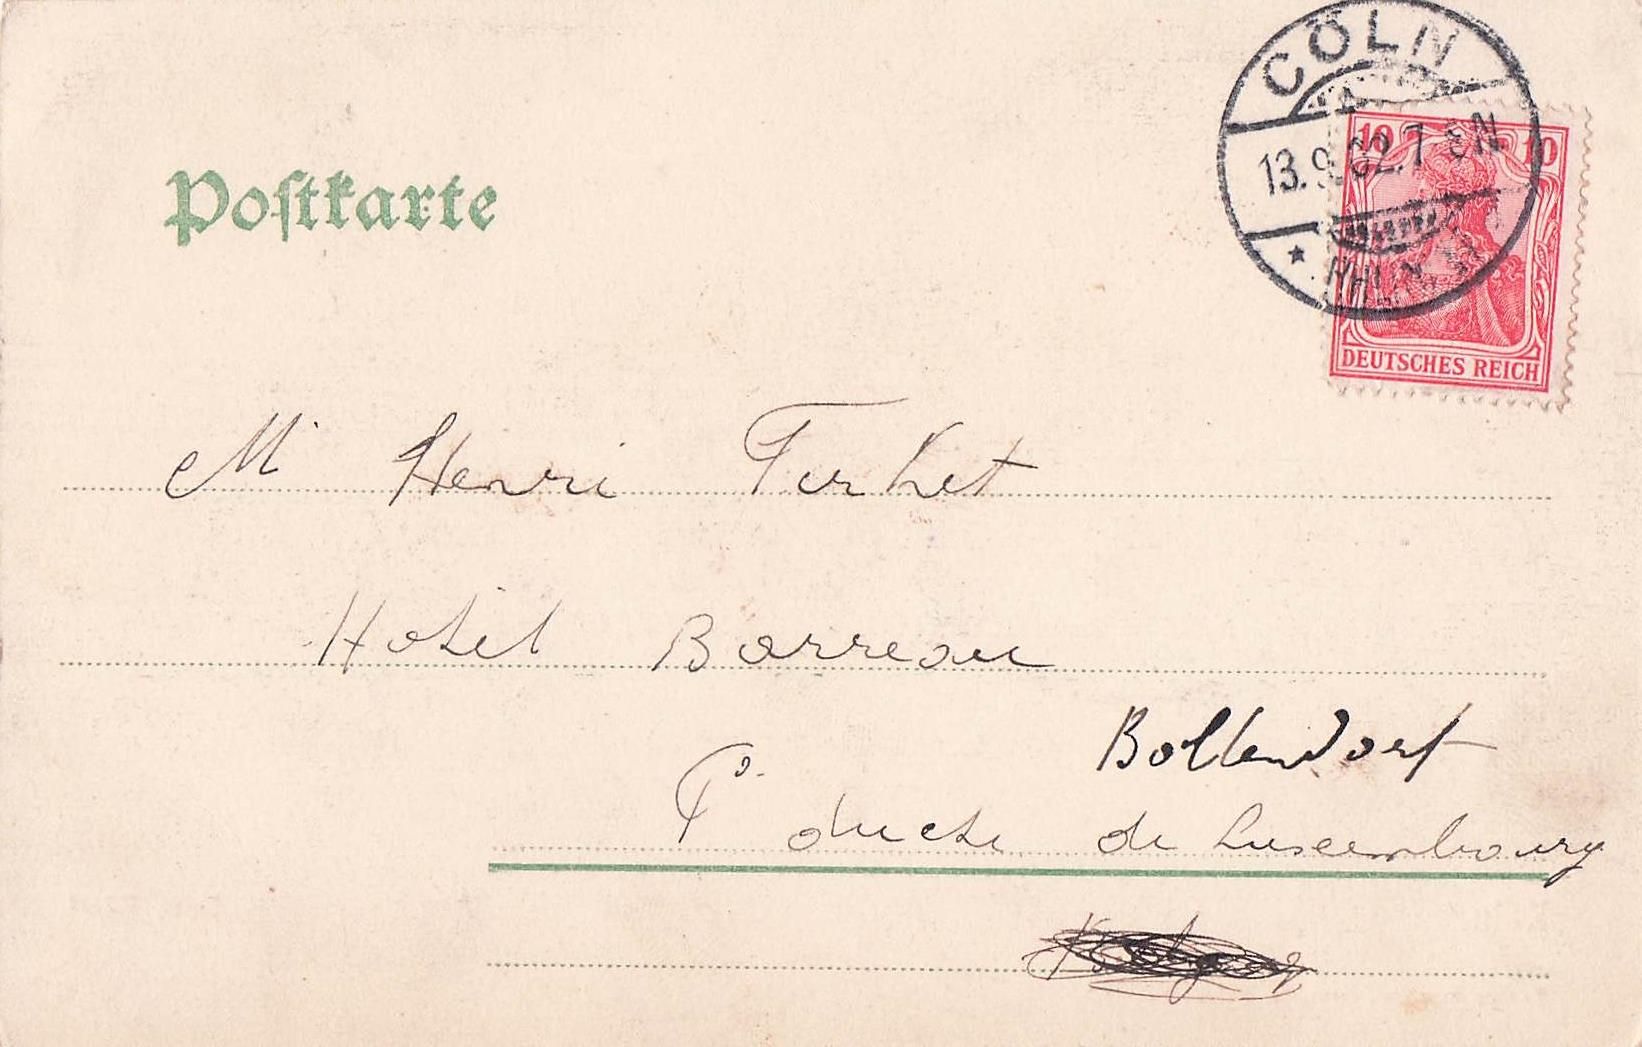 CÖLN
13.9.02.7 8N
10 10
DEUTSCHES REICH
Postkarte
Mʳ Henri
Hotel Barreau
Bollendorf
Gᵈ duché de Luxembourg